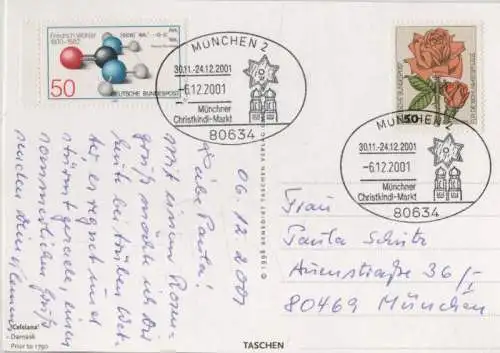 Friedrich Wöhler
1800-1882
50
DEUTSCHE BUNDESPOST
MÜNCHEN 2
30.11.-24.12.2001
-6.12.2001
Münchner
Christkindl-Markt
80634
50
MÜNCHEN 2
30.11.-24.12.2001
-6.12.2001
Münchner
Christkindl-Markt
80634
06.12.2001
Liebe Paula!
Mit einem Rosen-
gruß möchte ich Dir
heute bei trüben Wet-
ter es regnet und
stürmt gerade, einen
sommerlichen Gruß
senden
© 1996 BENEDIKT TASCHEN VERLAG
Frau
Paula Schütz
Auenstraße 36/-
80469 München
'Celsiana'
- Damask
Prior to 1750
TASCHEN